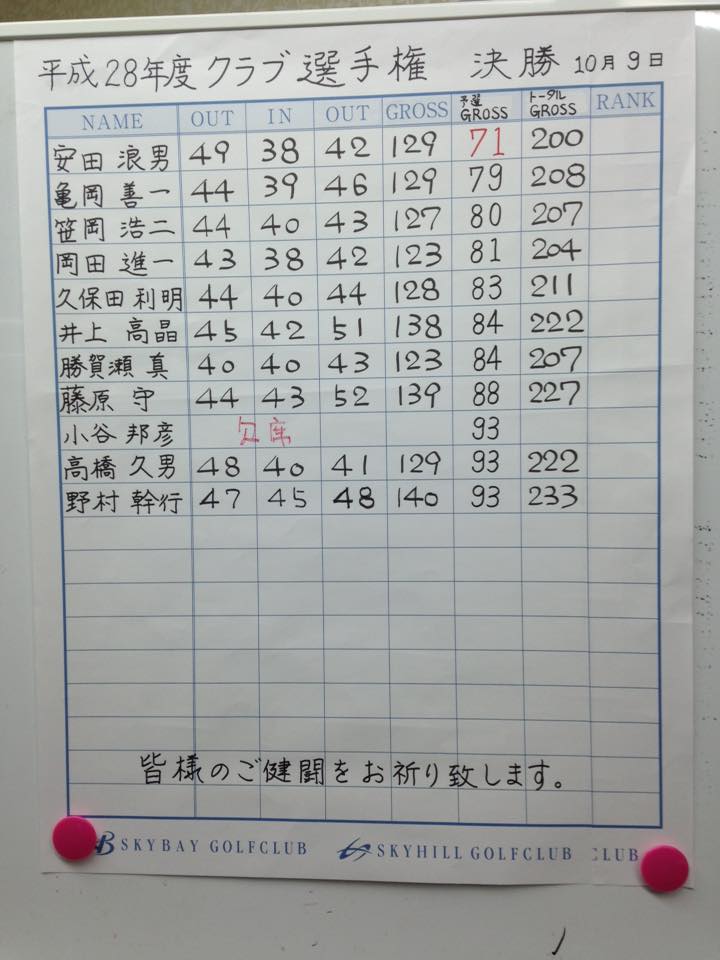 平成28年度 クラブ選手権 決勝 10月9日
NAME OUT IN OUT GROSS 予選GROSS トータルGROSS RANK
安田 浪男 49 38 42 129 71 200
亀岡 善一 44 39 46 129 79 208
笹岡 浩二 44 40 43 127 80 207
岡田 進一 43 38 42 123 81 204
久保田 利明 44 40 44 128 83 211
井上 高晶 45 42 51 138 84 222
勝賀瀬 真 40 40 43 123 84 207
藤原 守 44 43 52 139 88 227
小谷 邦彦 欠席 93
高橋 久男 48 40 41 129 93 222
野村 幹行 47 45 48 140 93 233
皆様のご健闘をお祈り致します。
SKYBAY GOLFCLUB SKYHILL GOLFCLUB CLUB